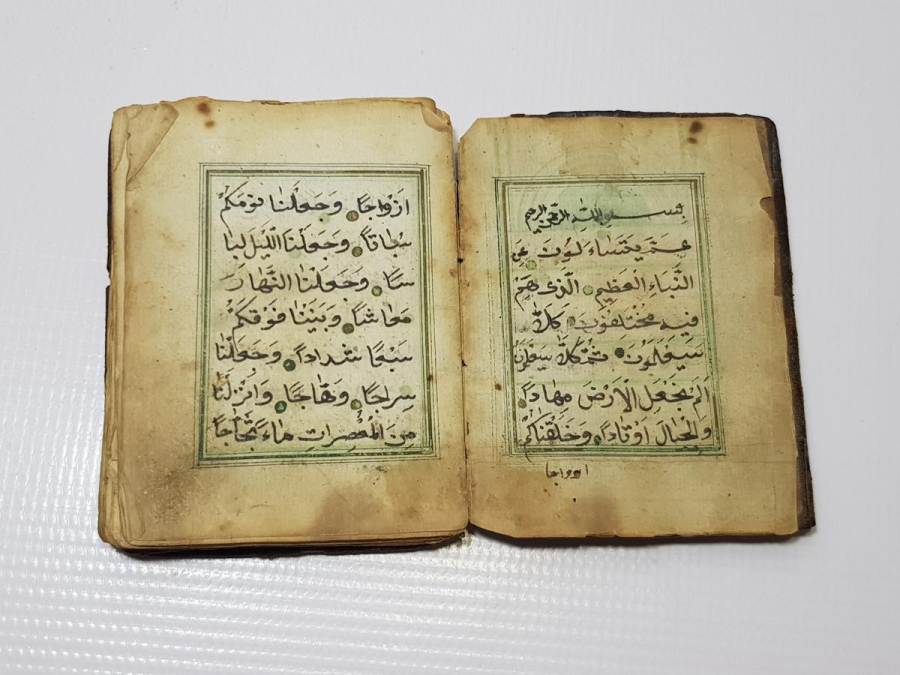 بسم الله الرحمن الرحيم
عَمَّ يَتَسَاءَلُونَ عَنِ
النَّبَاءِ الْعَظِيمِ الَّذِي هُمْ
فِيهِ مُخْتَلِفُونَ كَلَّا
سَيَعْلَمُونَ ثُمَّ كَلَّا سَيَعْلَمُونَ
اَلَمْ نَجْعَلِ الْاَرْضَ مِهَادًا
وَالْجِبَالَ اَوْتَادًا وَخَلَقْنَاكُمْ
ازواجا
اَزْوَاجًا وَجَعَلْنَا نَوْمَكُمْ
سُبَاتًا وَجَعَلْنَا الَّيْلَ لِبَا
سًا وَجَعَلْنَا النَّهَارَ
مَعَاشًا وَبَنَيْنَا فَوْقَكُمْ
سَبْعًا شِدَادًا وَجَعَلْنَا
سِرَاجًا وَهَّاجًا وَاَنْزَلْنَا
مِنَ الْمُعْصِرَاتِ مَاءً ثَجَّاجًا